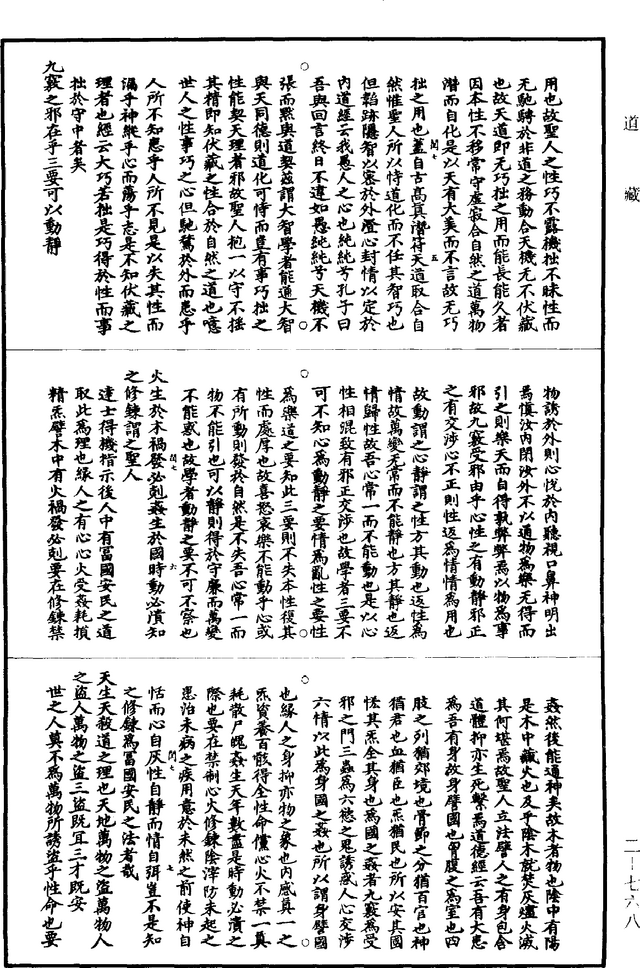 道藏
用也故聖人之性巧不露機拙不昧性而
无馳騁於非道之務動合天機无不伏藏
也故天道即无巧拙之用而能長能久者
因本性不移常守虛寂合自然之道萬物
潛而自化是以天有大美而不言故无巧
閏七
五
拙之用也蓋自古高真潛符天道取合自
然惟聖人所以恃道化而不任其智巧也
但韜跡隱智以密於外澄心封情以定於
內道經云我愚人之心也純純兮孔子曰
吾與回言終日不違如愚純純兮天機不
張而默與道契茲謂大智學者能通大智
與天同德則道化可恃而豈有事巧拙之
性能契天理者邪故聖人抱一以守不搖
其精即知伏藏之性合於自然之道也噫
世人之性事巧之心但馳騖於外而患乎
人所不知患乎人所不見是以失其性而
漏乎神縱乎心而蕩乎志是不知伏藏之
理者也經云大巧若拙是巧得於性而事
拙於守中者矣
九竅之邪在乎三要可以動靜
物誘於外則心悅於內聽視口鼻神明出
焉慎汝內閉汝外不以適物為樂无得而
引之則樂天而自得執弊弊焉以物為事
邪故九竅受邪由乎心性之有動靜邪正
之有交涉心不正則性返為情情為用也
故動謂之心靜謂之性方其動也返性為
情故萬變无常而不能靜也方其靜也返
情歸性故吾心常一而不能動也是以心
性相混致有邪正交涉也故學者三要不
可不知心為動靜之要情為亂性之要性
為樂道之要知此三要則不失本性復其
性而處厚也故喜怒哀樂不能動乎心或
有所動則發於自然是不失吾心常一而
物不能引也可以靜則得於守廉而萬變
不能惑也故學者動靜之要不可不察也
火生於木禍發必剋姦生於國時動必潰知
閏七
六
之修鍊謂之聖人
達士得機指示後人中有富國安民之道
取此為理也緣人之有心心火受姦耗損
精炁譬木中有火禍發必剋要在修鍊禁
姦然後能通神矣故木者物也陰中有陽
是木中藏火也及乎陰木就焚灰燼火滅
其何堪焉故聖人立法譬人之有身包含
道體抑亦生死繫焉道德經云吾有大患
為吾有身故身譬國也胷腹之為室也四
肢之列猶郊境也骨節之分猶百官也神
猶君也血猶臣也炁猶民也所以安其國
恡其炁全其身也為國之姦者九竅為受
邪之門三蟲為六慾之鬼誘惑人心交涉
六情以此為身國之姦也所以謂身譬國
也緣人之身抑亦物之象也內感真一之
炁資養百骸得全性命儻心火不禁一真
耗散尸魄姦生天年數盡是時動必潰之
際也要在禁制心火修鍊陰滓防未起之
患治未病之疾用意於未然之前使神自
閏七
七
恬而心自灰性自靜而情自弭豈不是知
之修鍊為富國安民之法者哉
天生天殺道之理也天地萬物之盜萬物人
之盜人萬物之盜三盜既宜三才既安
世之人莫不為萬物所誘盜乎性命也要
二一七六八